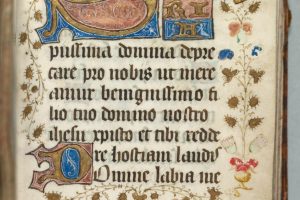 RIA
piissima domina depre
care pro nobis ut mere
amur benignissimo fi
lio tuo domino nostro
ihesu xpisto et tibi redde
re hostiam laudis
Domine labia me